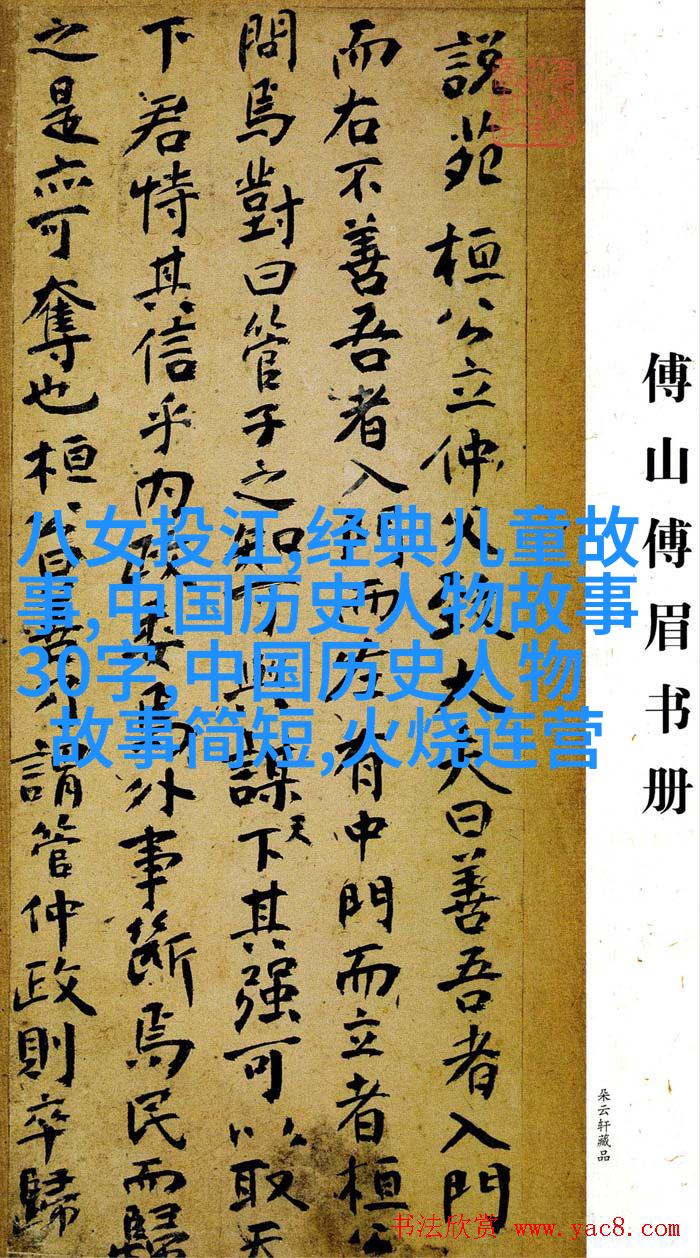 傅山傅眉书册
朵云轩藏品
說苑 桓公立仲父致大夫曰善吾者入門
而右不善吾者入門而左有中門而立者桓公
問焉對曰管子之知可與謀天下其强可以取天
下君恃其信乎內政委焉外事斷焉民而歸
之是亦可奪也桓公曰善乃謂管仲政則卒歸
八女投江,经典儿童故
事,中国历史人物故事
30字,中国历史人物
故事简短,火烧连营
书法欣赏 www.yac8.com